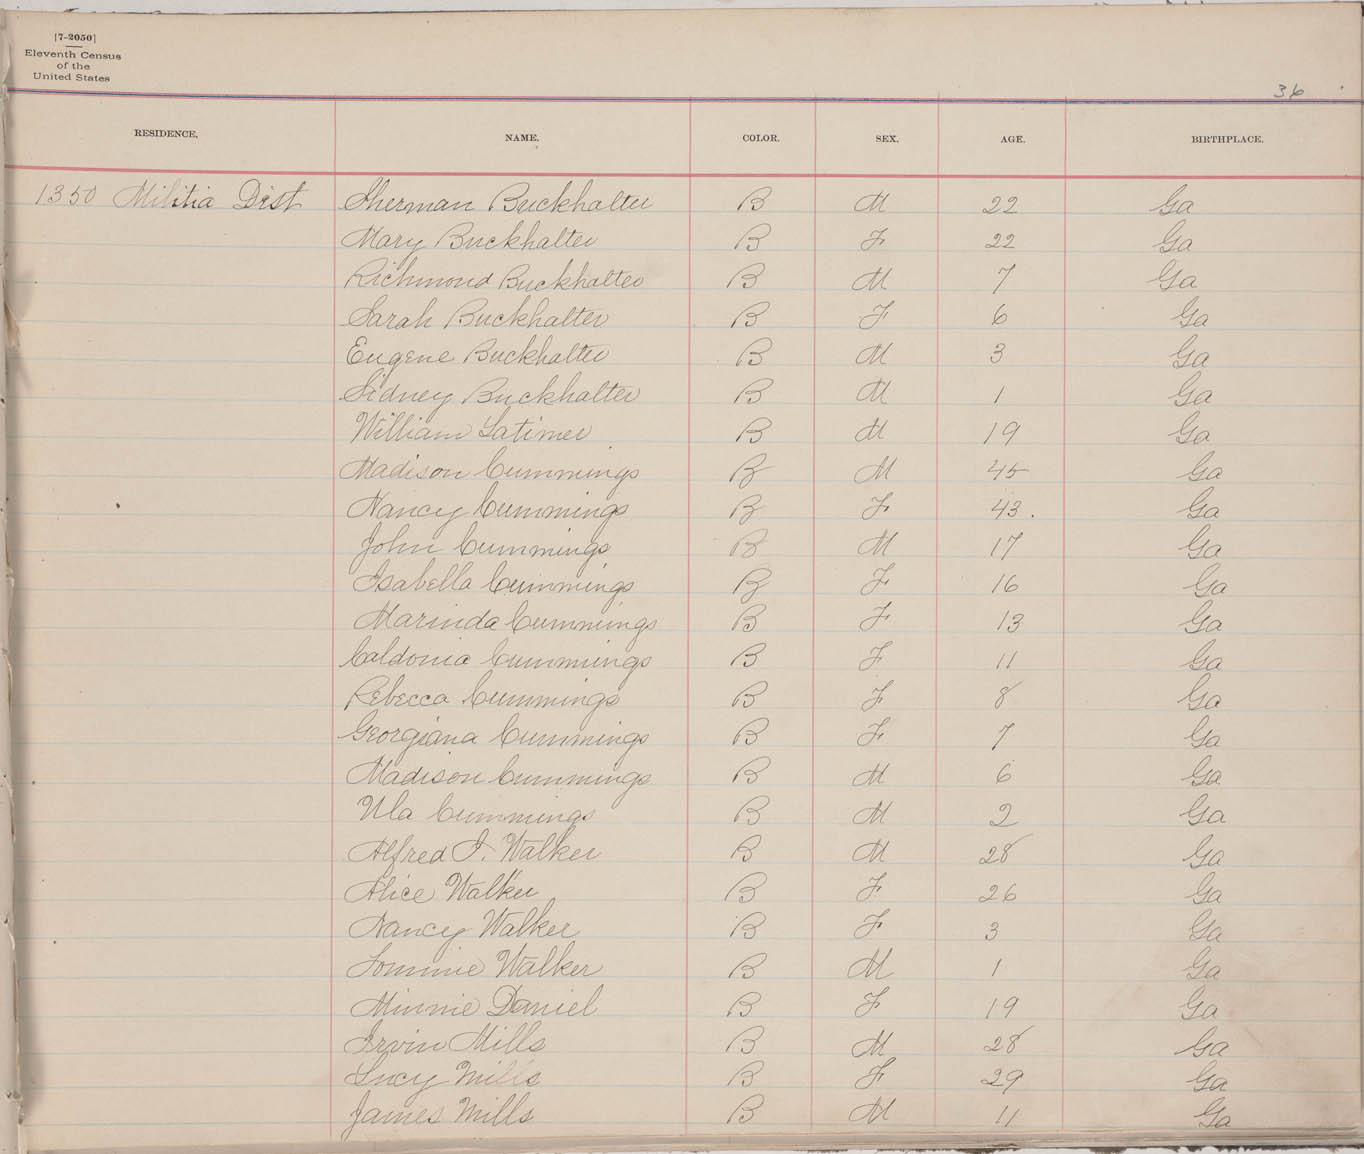 [7-2050]
Eleventh Census
of the
United States
36
RESIDENCE. NAME. COLOR. SEX. AGE. BIRTHPLACE.
1350 Militia Dist Sherman Buckhalter B M 22 Ga
Mary Buckhalter B F 22 Ga
Richmond Buckhalter B M 7 Ga
Sarah Buckhalter B F 6 Ga
Eugene Buckhalter B M 3 Ga
Sidney Buckhalter B M 1 Ga
William Latimer B M 19 Ga
Madison Cummings B M 45 Ga
Nancy Cummings B F 43. Ga
John Cummings B M 17 Ga
Isabella Cummings B F 16 Ga
Marinda Cummings B F 13 Ga
Caldonia Cummings B F 11 Ga
Rebecca Cummings B F 8 Ga
Georgiana Cummings B F 7 Ga
Madison Cummings B M 6 Ga
Ula Cummings B M 2 Ga
Alfred J. Walker B M 28 Ga
Alice Walker B F 26 Ga
Nancy Walker B F 3 Ga
Walker B M 1 Ga
Minnie Daniel B F 19 Ga
Irvin Mills B M 28 Ga
Lucy Mills B F 29 Ga
James Mills B M 11 Ga